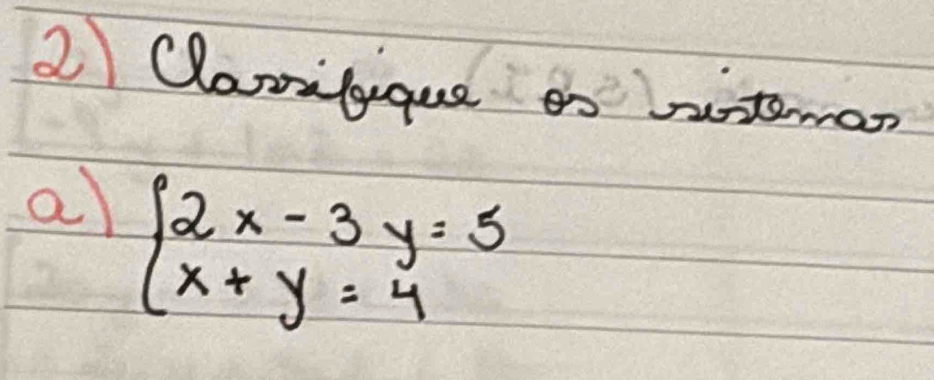 2) Classifique os sistemas
a) { 2x - 3y = 5
x + y = 4